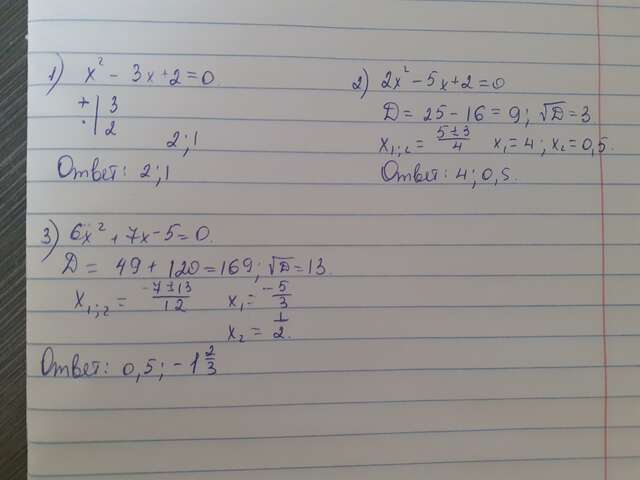 1) x² - 3x + 2 = 0.
+ | 3
· | 2
2; 1
Ответ: 2; 1
2) 2x² - 5x + 2 = 0
D = 25 - 16 = 9; √D = 3
x₁;₂ = (5±3)/4 x₁ = 4; x₂ = 0,5.
Ответ: 4; 0,5.
3) 6x² + 7x - 5 = 0.
D = 49 + 120 = 169; √D = 13.
x₁;₂ = (-7±13)/12 x₁ = -5/3
x₂ = 1/2.
Ответ: 0,5; -1 2/3